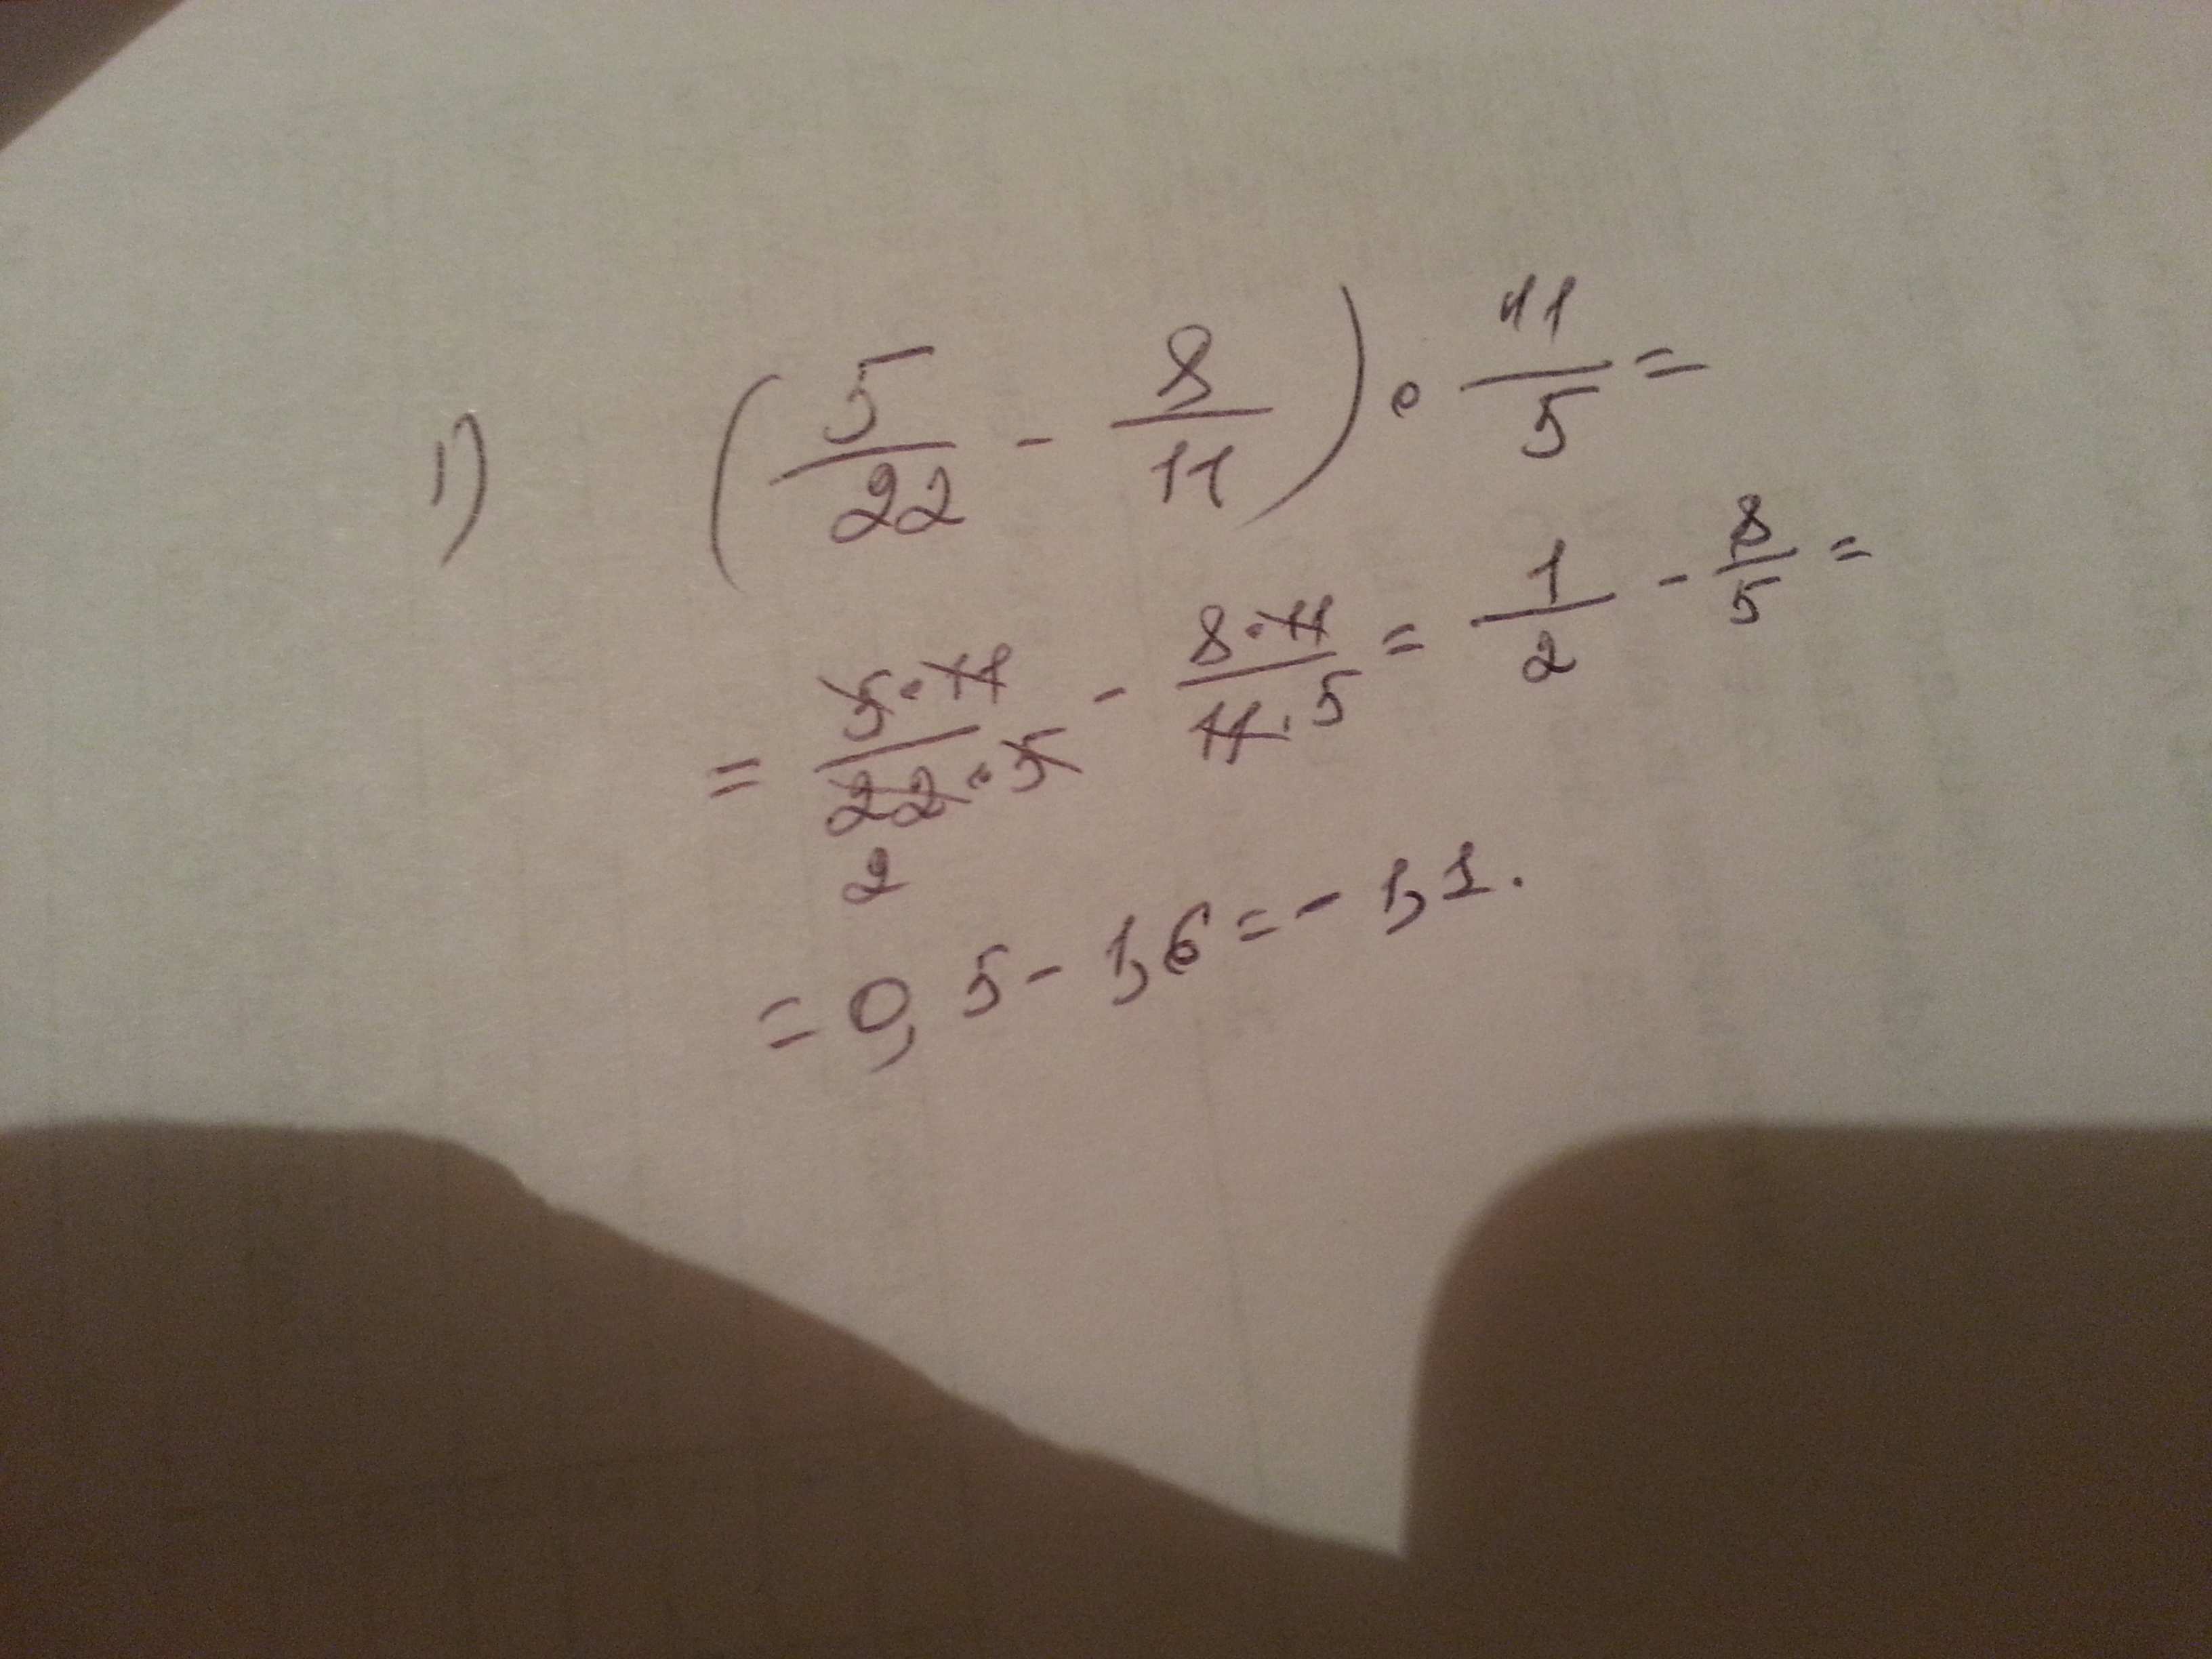 1) (5/22 - 8/11) · 11/5 =
= 5·11/22·5 2 - 8·11/11·5 = 1/2 - 8/5 =
= 0,5 - 1,6 = - 1,1.